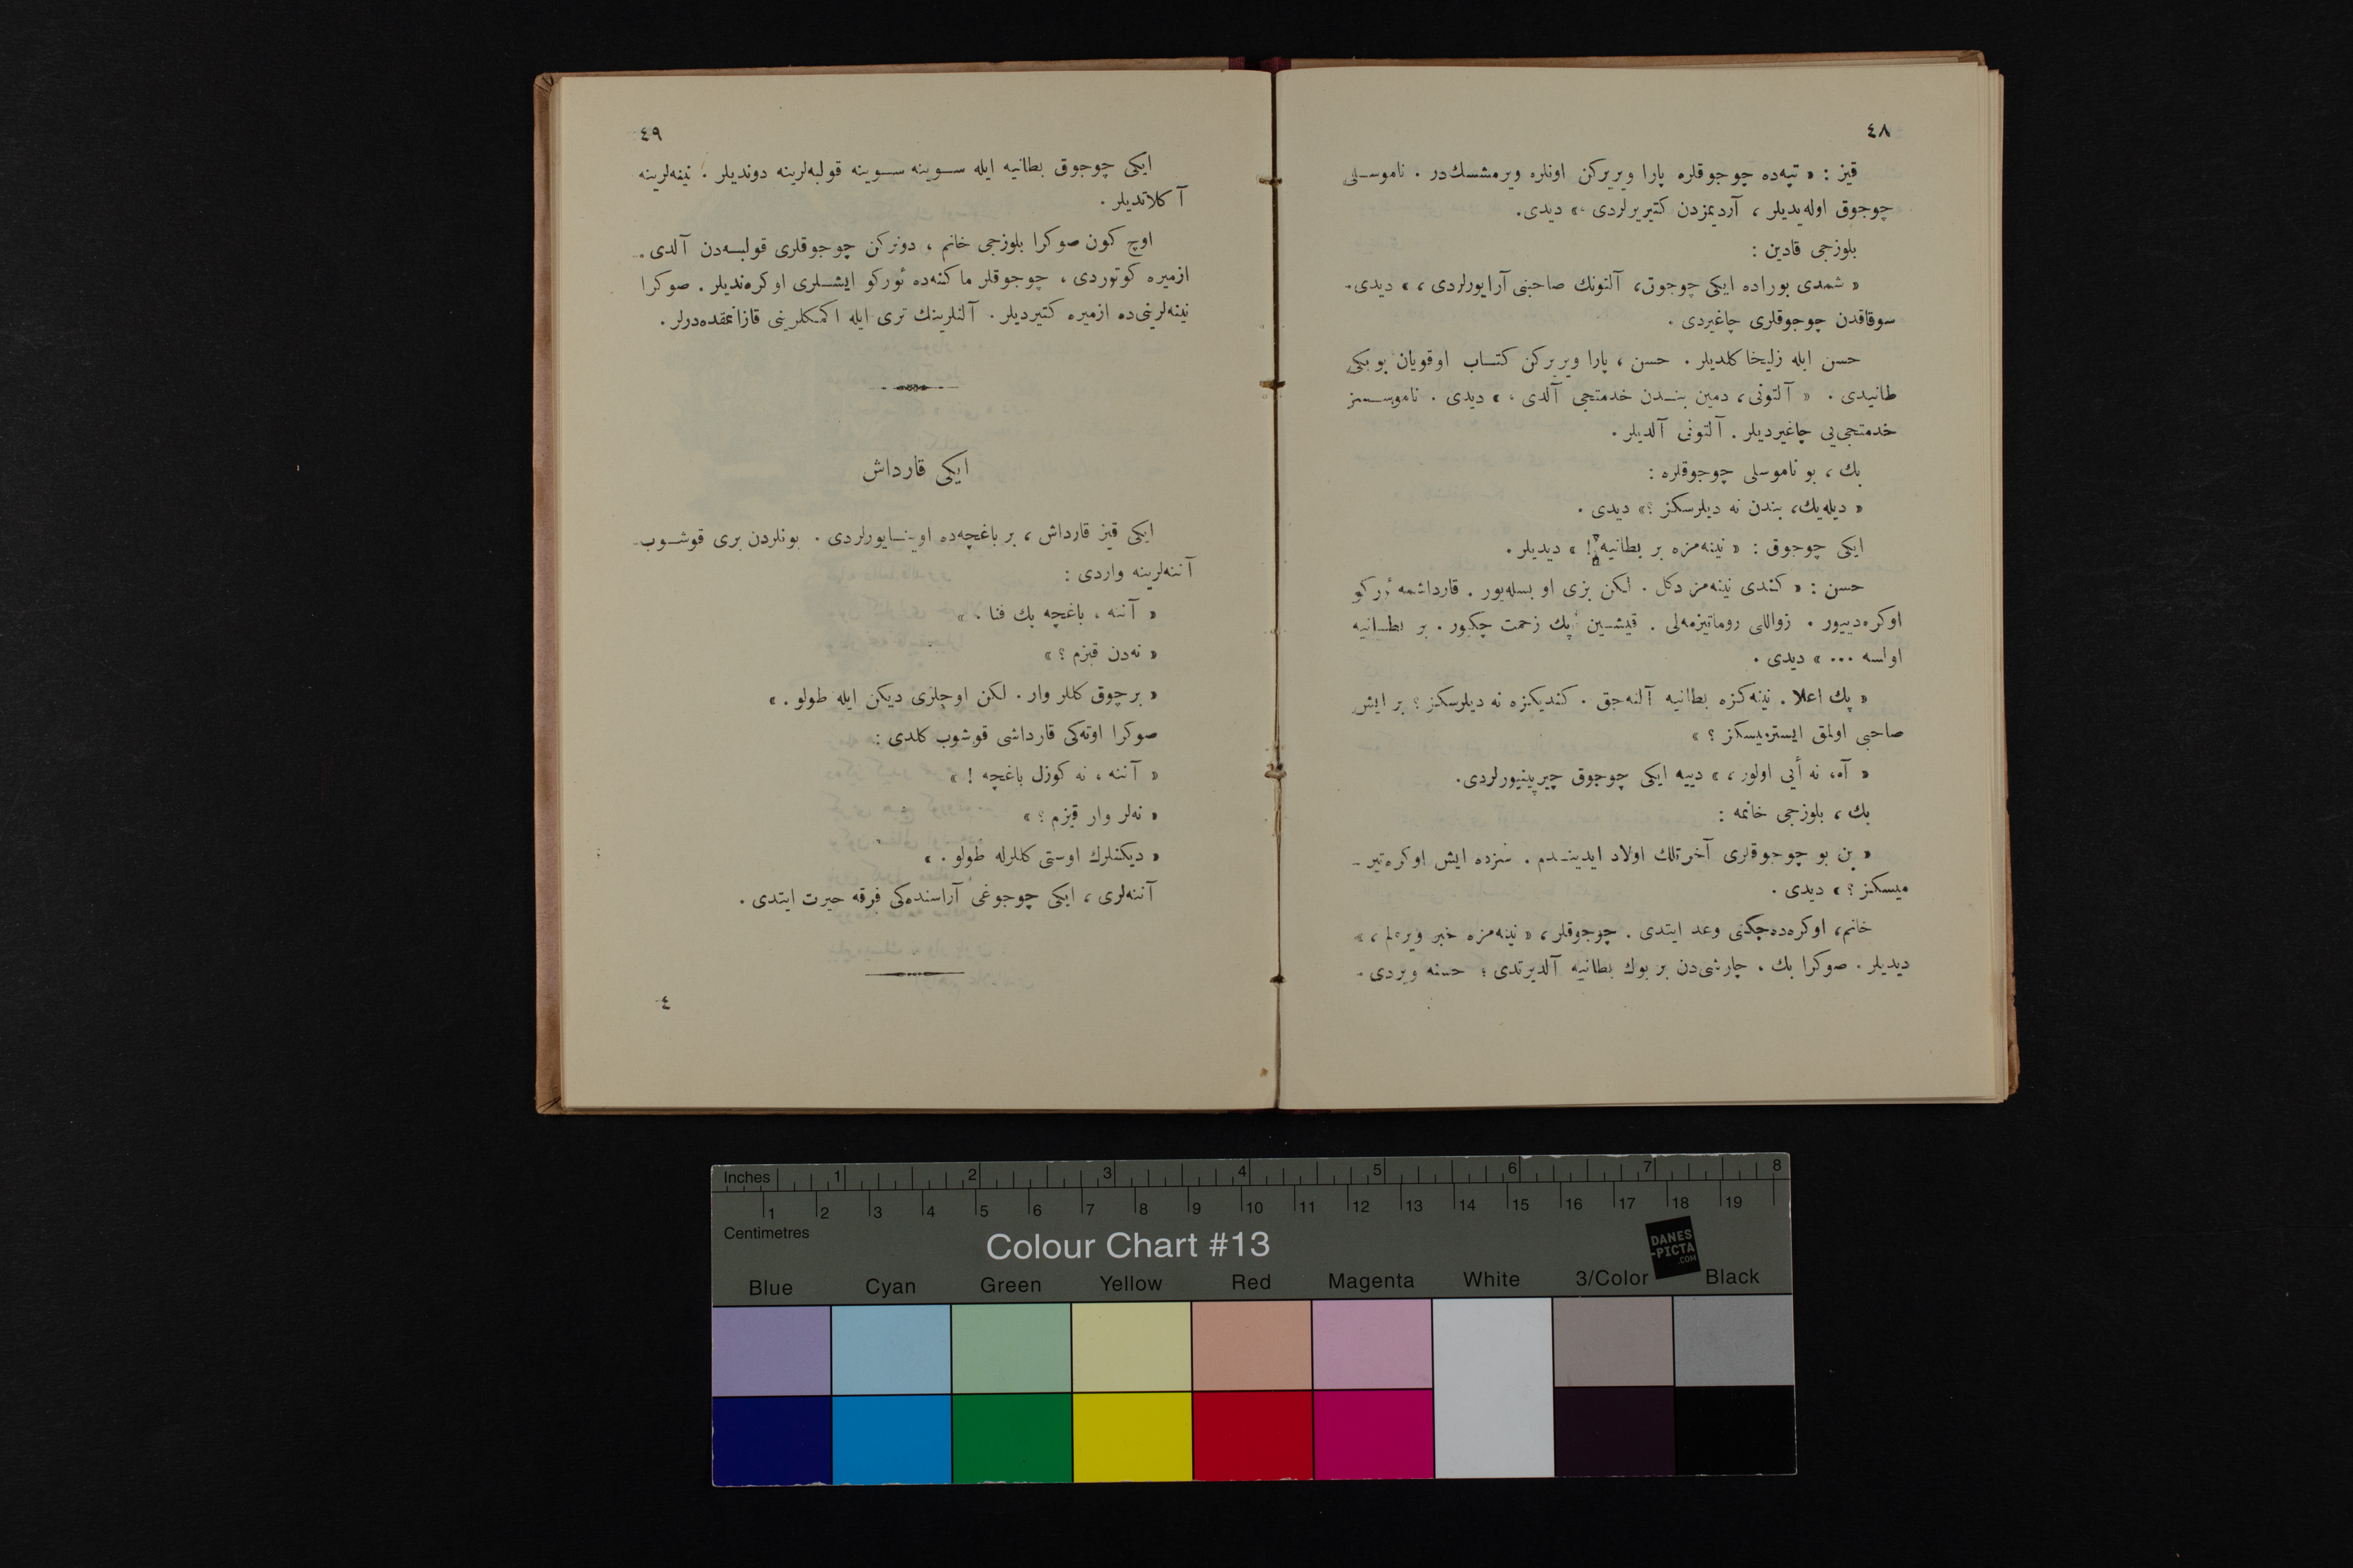 ٤٨
قیز : « تپه‌ده چوجوقلره پارا ویریركن اونلره ویرمشسك‌در . ناموسلی
چوجوق اوله‌یدیلر ، آردیمزدن كتیریرلردی ،» دیدی.
بلوزجی قادین :
« شمدی بوراده ایكی چوجوق، آلتونك صاحبنی آرایورلردی ، » دیدی.
سوقاقدن چوجوقلری چاغیردی .
حسن ایله زلیخا كلدیلر . حسن ، پارا ویریركن كتاب اوقویان بو بكی
طانیدی . « آلتونی ، دمین بندن خدمتجی آلدی ، » دیدی . ناموسسز
خدمتجی‌یی چاغیردیلر . آلتونی آلدیلر .
بك ، بو ناموسلی چوجوقلره :
« دیله‌یك، بندن نه دیلرسكز ؟» دیدی .
ایكی چوجوق : « نینه‌مزه بر بطانیه ! » دیدیلر .
حسن : « كندی نینه‌مز دكل . لكن بزی او بسله‌یور . قارداشمه ئوركو
اوكره‌دییور . زواللی روماتیزمه‌لی . قیشین پك زحمت چكیور . بر بطانیه
اولسه ... » دیدی .
« پك اعلا . نینه‌كزه بطانیه آلنه‌جق . كندیكزه نه دیلرسكز ؟ بر ایش
صاحبی اولمق ایسترمیسكز ؟ »
« آه، نه أیی اولور ، » دییه ایكی چوجوق چیرپینیورلردی.
بك ، بلوزجی خانمه :
« بن بو چوجوقلری آخرتلك اولاد ایدیندم . سزده ایش اوكره‌تیر -
میسكز ؟ » دیدی .
خانم، اوكره‌ده‌جكنی وعد ایتدی . چوجوقلر ، « نینه‌مزه خبر ویره‌لم ، »
دیدیلر . صوكرا بك ، چارشی‌دن بر بوك بطانیه آلدیرتدی ؛ حسنه ویردی .
٤٩
ایكی چوجوق بطانیه ایله سوینه سوینه قولبه‌لرینه دوندیلر . نینه‌لرینه
آكلاتدیلر .
اوچ كون صوكرا بلوزجی خانم ، دونركن چوجوقلری قولبه‌دن آلدی .
ازمیره كوتوردی ، چوجوقلر ماكنه‌ده ئوركو ایشلری اوكرندیلر . صوكرا
نینه‌لرینی‌ده ازمیره كتیردیلر . آلنلرینك تری ایله اكمكلرینی قازانمقده‌درلر .
ایكی قارداش
ایكی قیز قارداش ، بر باغچه‌ده اوینایورلردی . بونلردن بری قوشوب
آننه‌لرینه واردی :
« آننه ، باغچه پك فنا . »
« نه‌دن قیزم ؟ »
« بر چوق كللر وار . لكن اوجلری دیكن ایله طولو . »
صوكرا اوته‌كی قارداشی قوشوب كلدی :
« آننه ، نه كوزل باغچه ! »
« نه‌لر وار قیزم ؟ »
« دیكنلرك اوستی كللرله طولو . »
آننه‌لری ، ایكی چوجوغی آراسنده‌كی فرقه حیرت ایتدی .
٤
Inches 1 2 3 4 5 6 7 8
1 2 3 4 5 6 7 8 9 10 11 12 13 14 15 16 17 18 19
Centimetres
Colour Chart #13
DANES
-PICTA
.COM
Blue Cyan Green Yellow Red Magenta White 3/Color Black